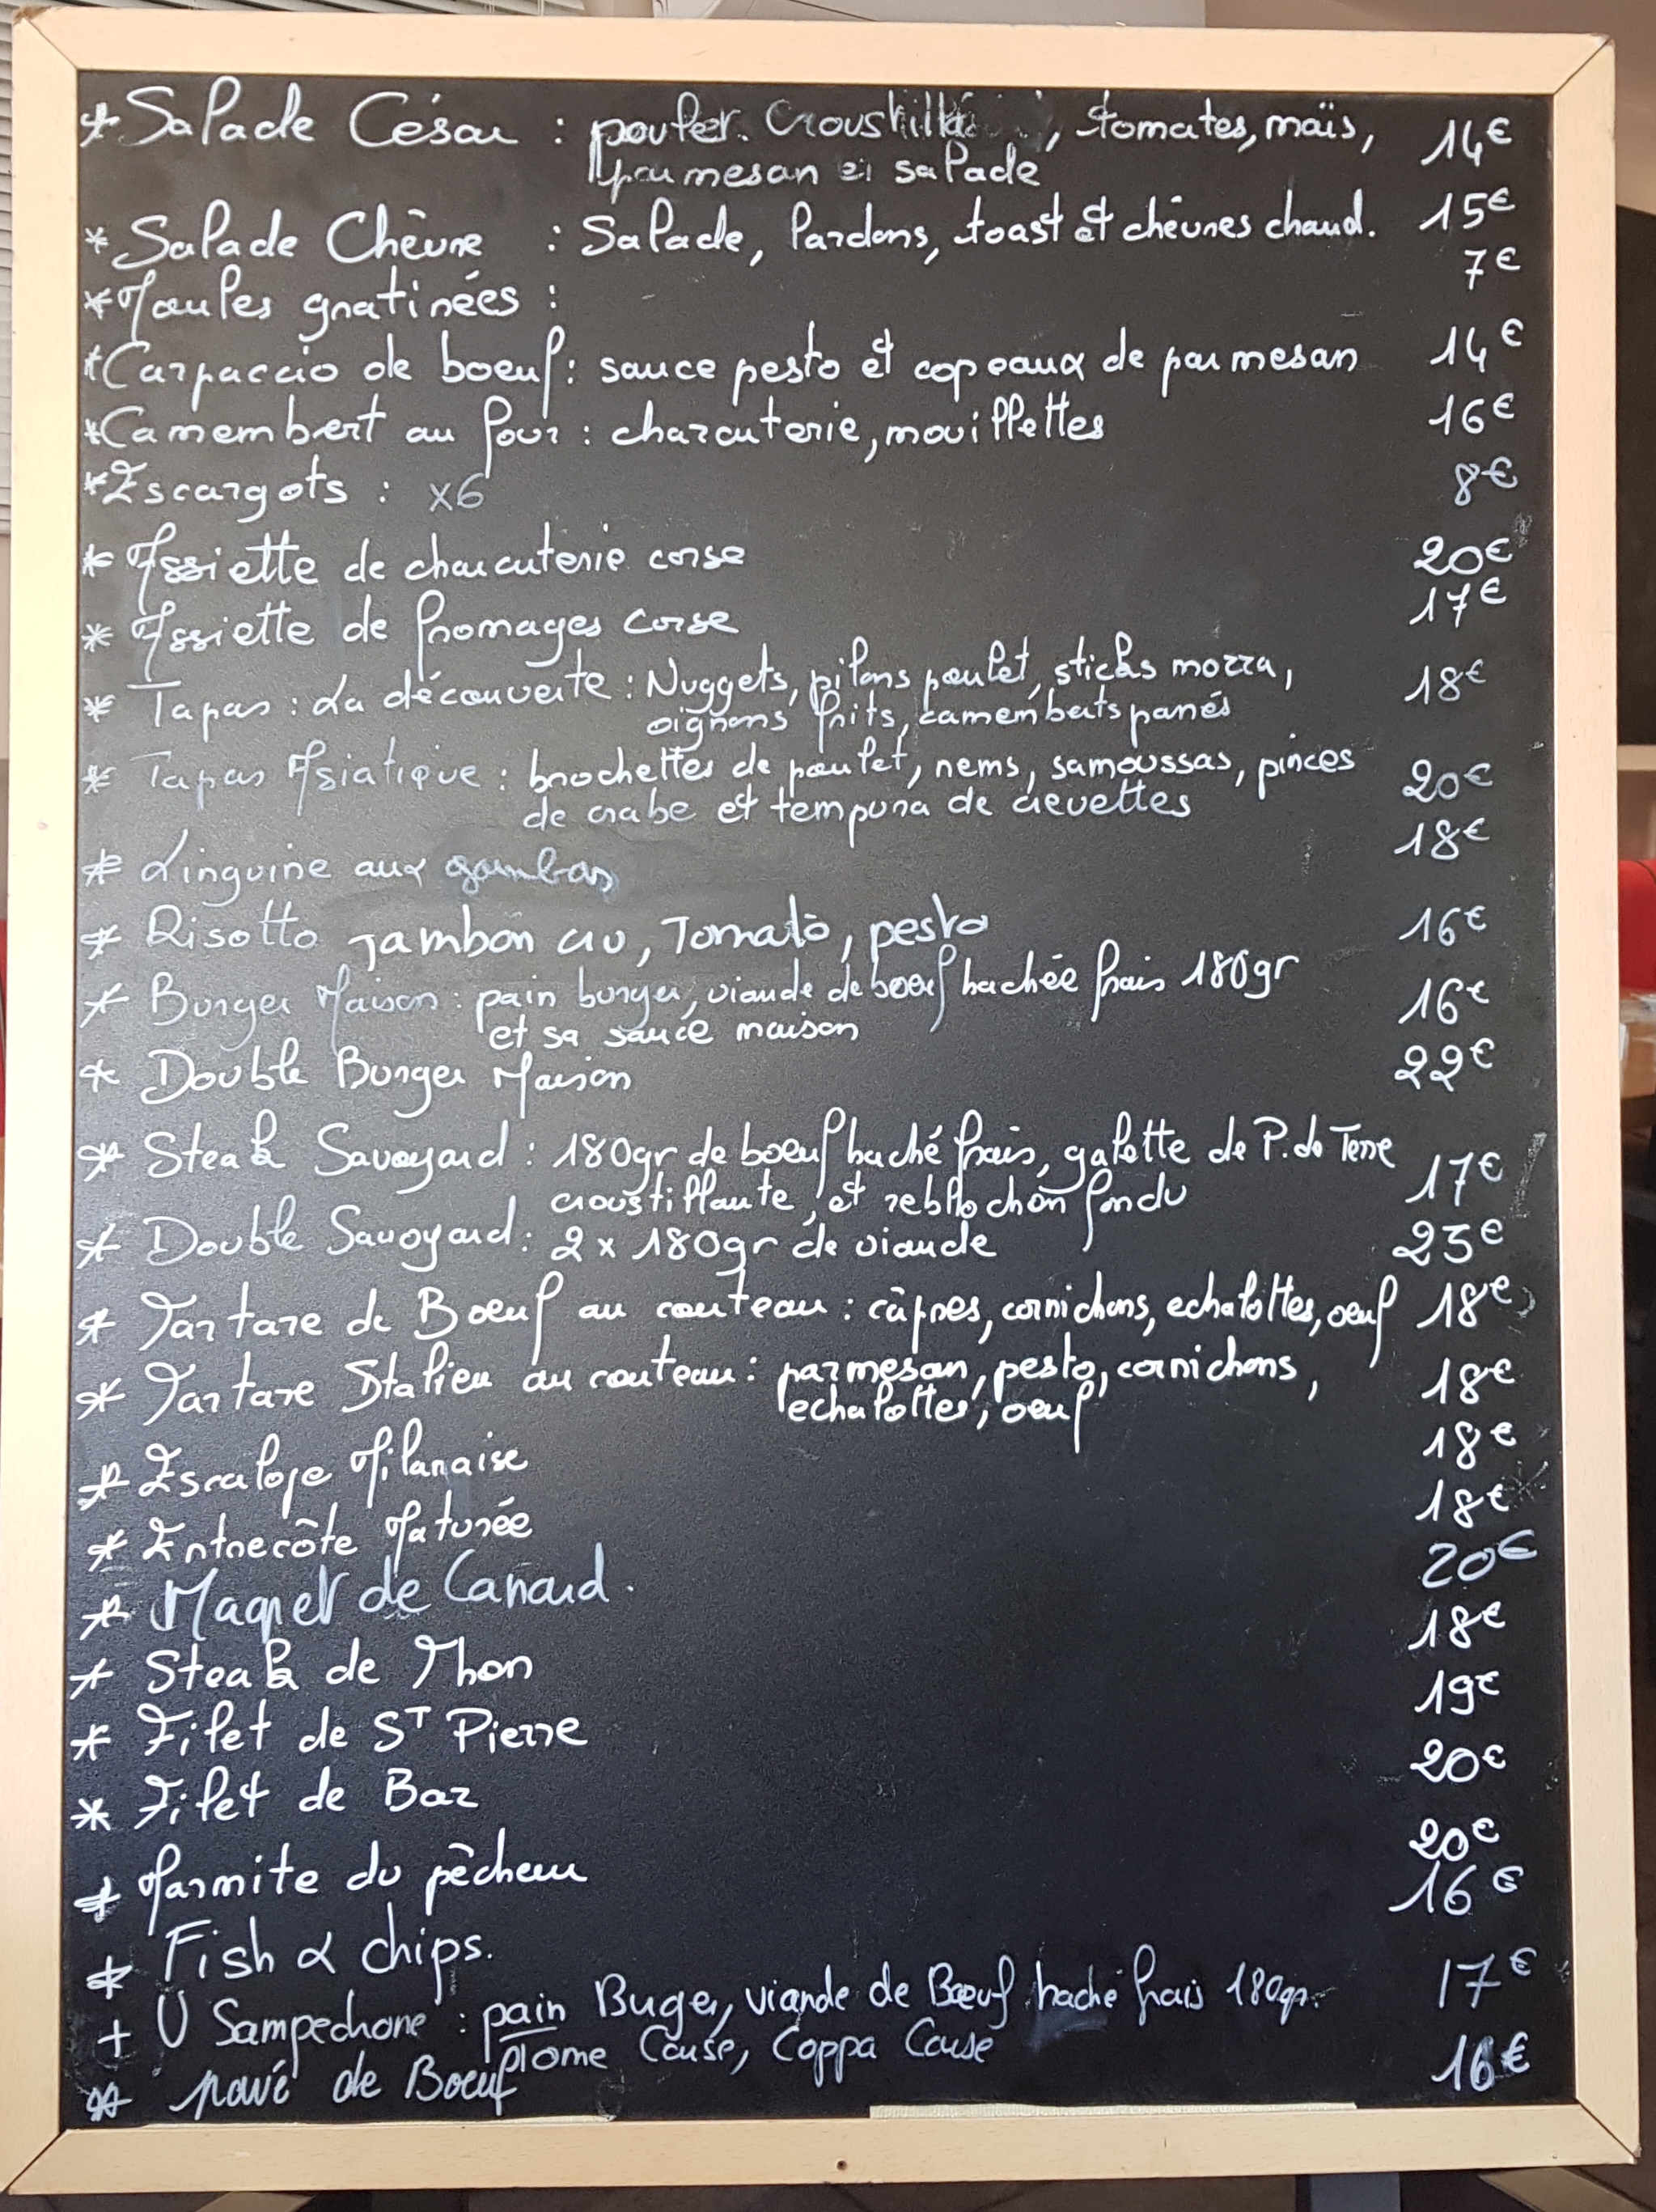 * Salade César : poulet Croustillt , tomates, maïs, 14€
parmesan et salade
* Salade Chèvre : Salade, lardons, toast et chèvres chaud. 15€
* Moules gratinées : 7€
* Carpaccio de boeuf : sauce pesto et copeaux de parmesan 14€
* Camembert au four : charcuterie, mouillettes 16€
* Escargots : x6 8€
* Assiette de charcuterie corse 20€
* Assiette de fromages corse 17€
* Tapas : La découverte : Nuggets, pilons poulet, sticks mozza, 18€
oignons frits, camemberts panés
* Tapas Asiatique : brochettes de poulet, nems, samoussas, pinces 20€
de crabe et tempura de crevettes
* Linguine aux gambas 18€
* Risotto Jambon cru, Tomato, pesto 16€
* Burger Maison : pain burger, viande de boeuf hachée frais 180gr 16€
et sa sauce maison
* Double Burger Maison 22€
* Steak Savoyard : 180gr de boeuf haché frais, galette de P. de Terre 17€
croustillante, et reblochon fondu
* Double Savoyard : 2 x 180gr de viande 23€
* Tartare de Boeuf au couteau : câpres, cornichons, echalottes, oeuf 18€
* Tartare Italien au couteau : parmesan, pesto, cornichons, 18€
echalottes, oeuf
* Escalope Milanaise 18€
* Entrecôte Maturée 18€
* Magret de Canard. 20€
* Steak de Thon 18€
* Filet de ST Pierre 19€
* Filet de Bar 20€
* Marmite du pêcheur 20€
* Fish & chips. 16€
+ U Sampechone : pain Burger, viande de Bœuf haché frais 180gr. 17€
Tome Corse, Coppa Corse
* pavé de Boeuf 16€